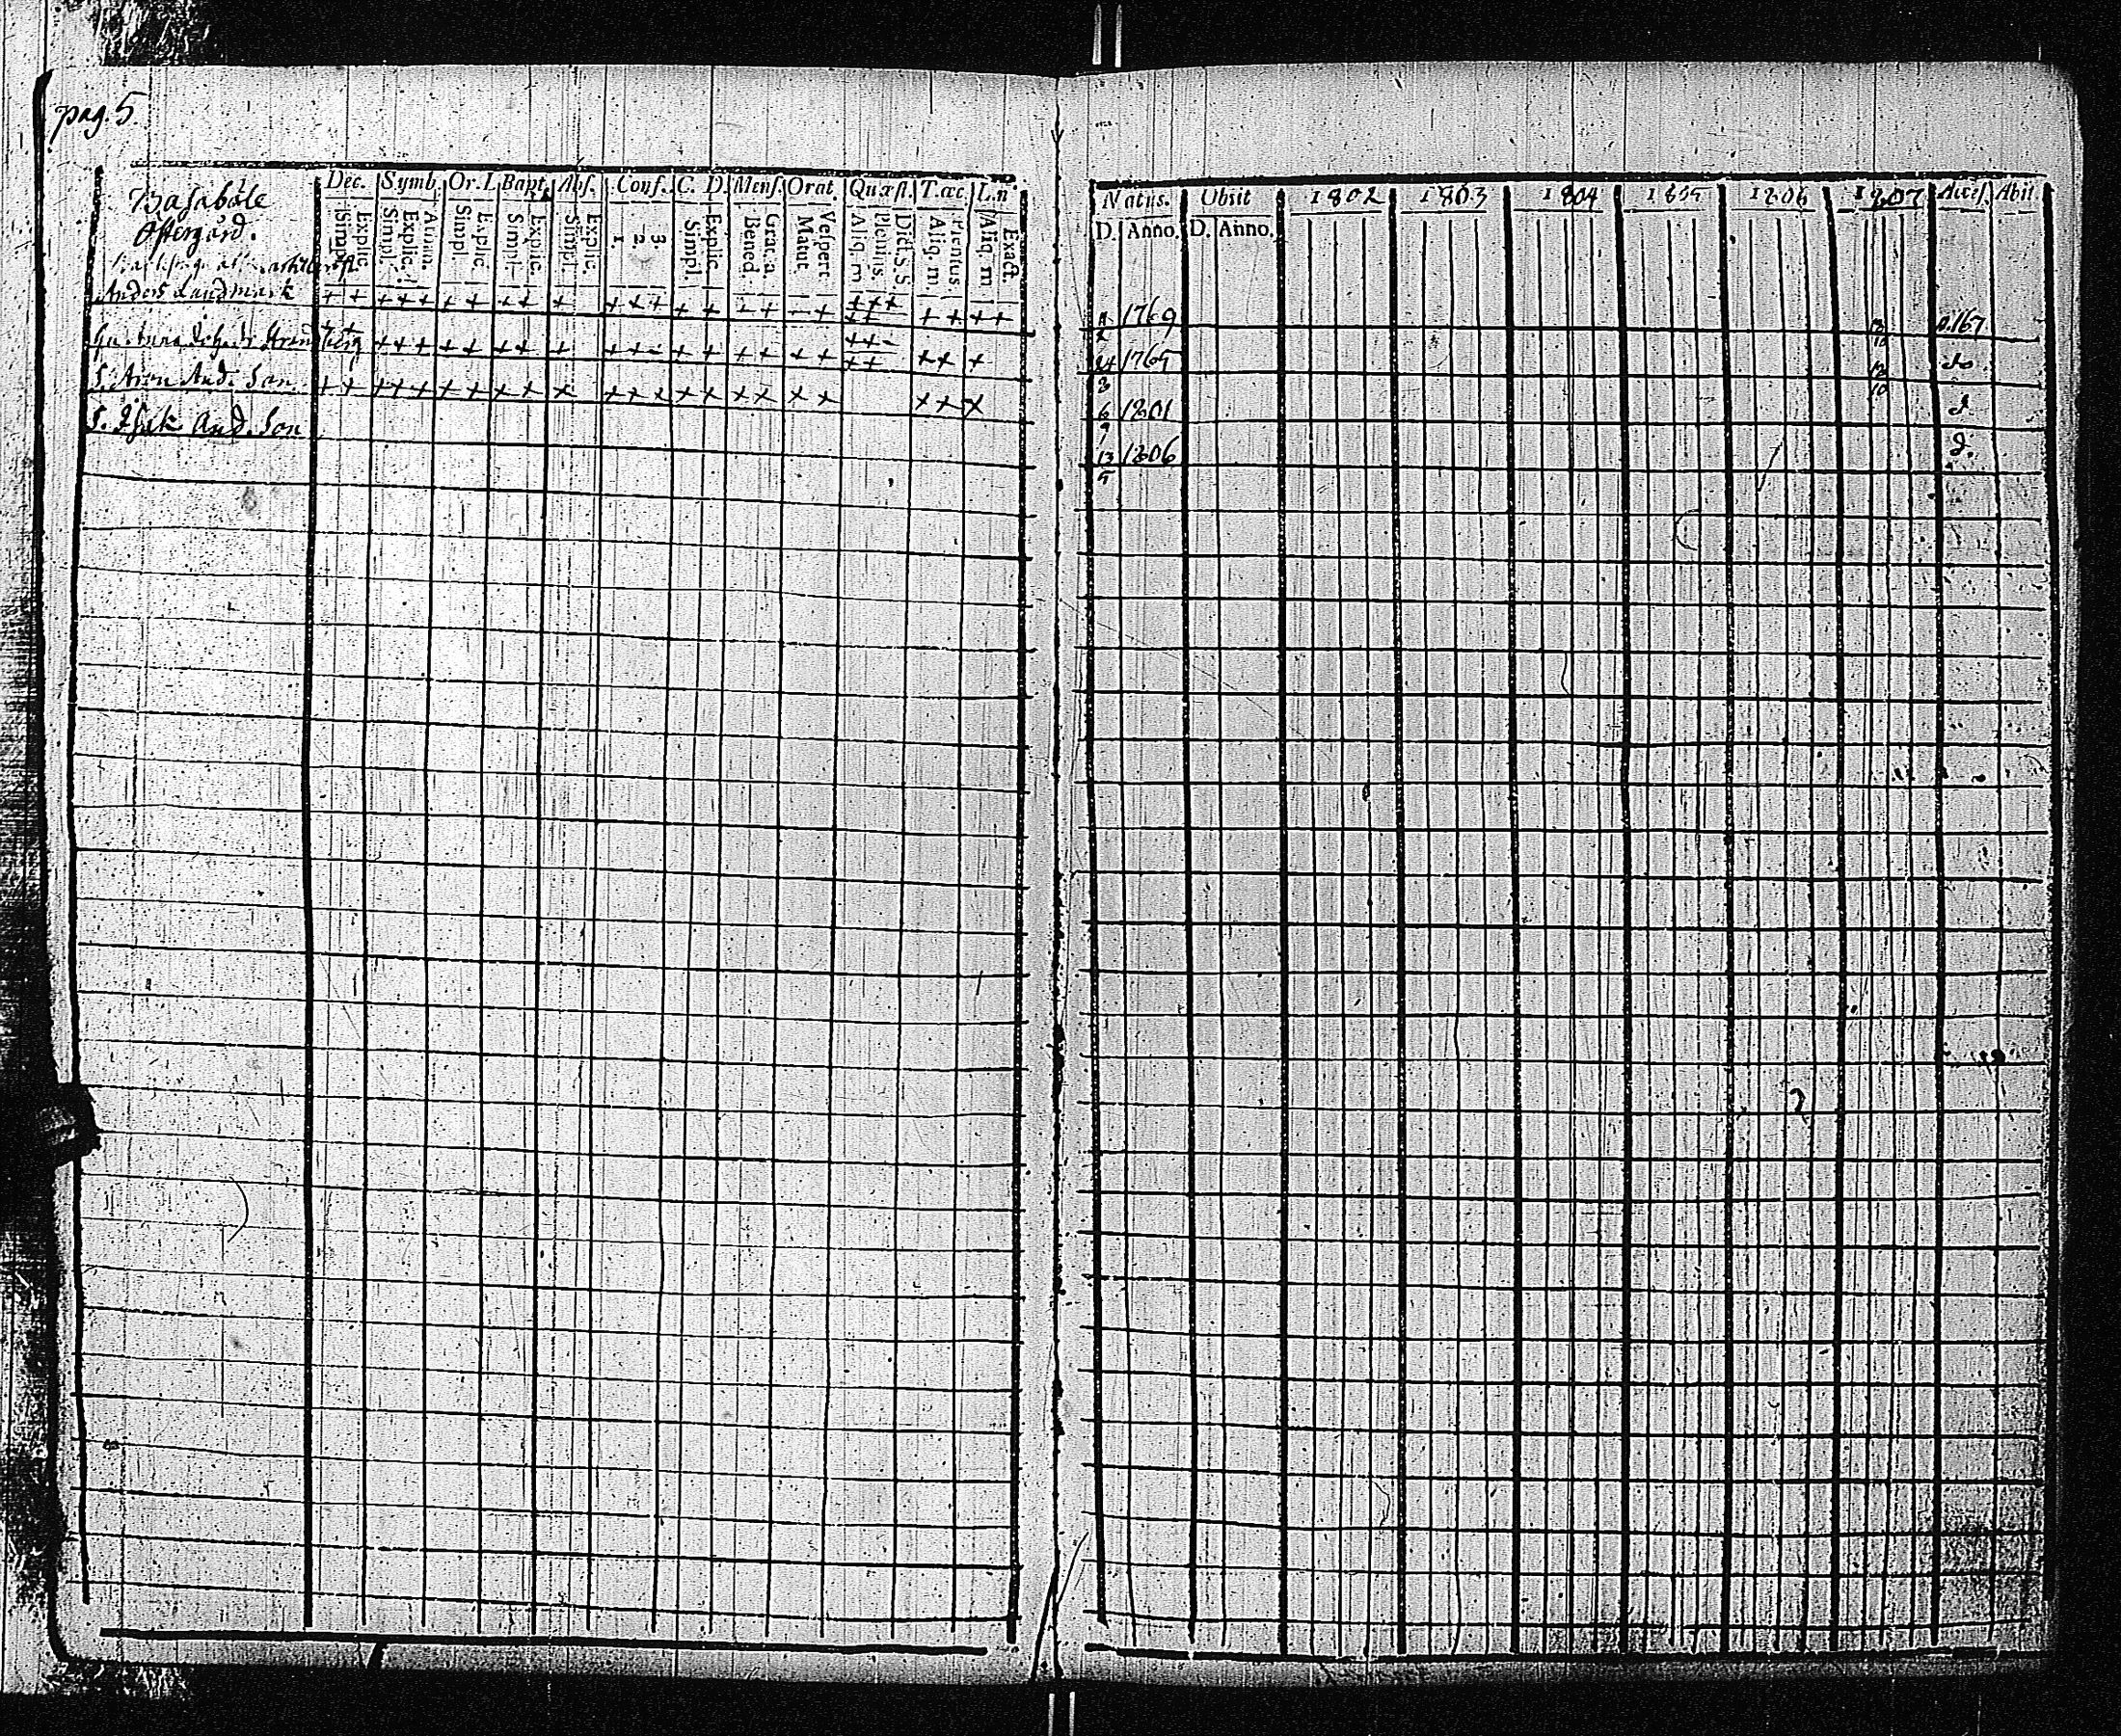 pag. 5.
Basabole
Östergård.
Dec. Symb. Or. L Bapt. Abs. Conf. C. D. Mens. Orat. Quæst. Tac. L.n.
Simpl. Explic. Simpl. Explic. Athan. Simpl. Explic. Simpl. Explic. Simpl. Explic. 1 2 3 Simpl. Explic. Bened. Grat.a. Matut. Vespert. Aliq. m Plenius. Dict. S. S. Aliq. m Plenius Aliq. m Exact.
Natus. Obiit 1802 1803 1804 1805 1806 1807 Access. Abiit
D. Anno. D. Anno.
Anders Landmark + + + + + + + + + + + + + + + + + + + + + + + + + + + + 1769 p. 167
+ + + + + + + + + + + + + + + + + + + + + + + + + 24/3 1765 12/10 do
S. Aron And. Son. + + + + + + + + + + + + + + + + + + + + + 6/7 1801 d
S. Isak And. Son 13/5 1806 d.